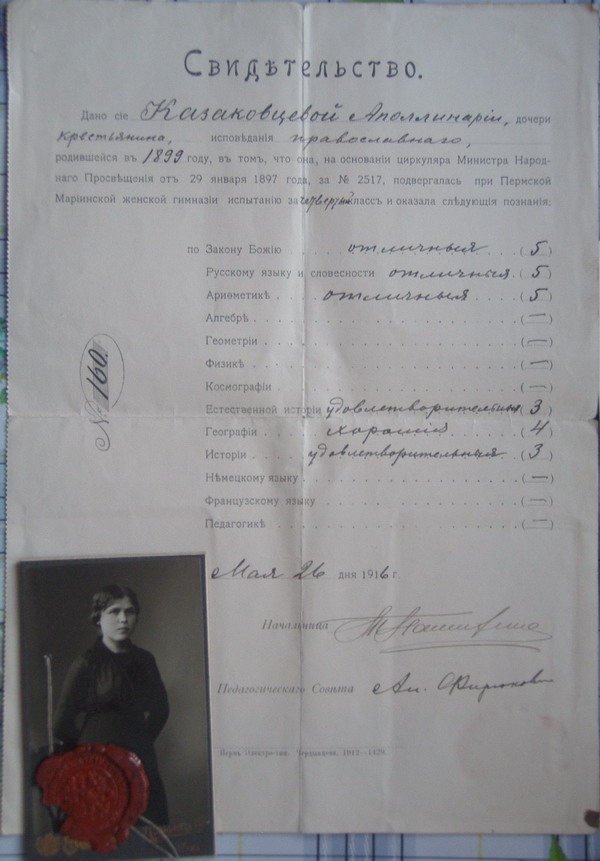 Свидѣтельство.
Дано сіе Казаковцевой Аполлинаріи, дочери
крестьянина, исповѣданія православнаго,
родившейся въ 1899 году, въ томъ, что она, на основаніи циркуляра Министра Народ-
наго Просвѣщенія отъ 29 января 1897 года, за № 2517, подвергалась при Пермской
Маріинской женской гимназіи испытанію за четвертый классъ и оказала слѣдующія познанія:
по Закону Божію отличныя (5)
Русскому языку и словесности отличныя (5)
Ариѳметикѣ отличныя (5)
Алгебрѣ (—)
Геометріи (—)
Физикѣ (—)
Космографіи (—)
Естественной исторіи удовлетворительныя (3)
Географіи хорошія (4)
Исторіи удовлетворительныя (3)
Нѣмецкому языку (—)
Французскому языку (—)
Педагогикѣ (—)
№ 160.
Мая 26 дня 1916 г.
Начальница
Педагогическаго Совѣта Ан.
Пермь Электро-тип. Чердынцева. 1912—1129.